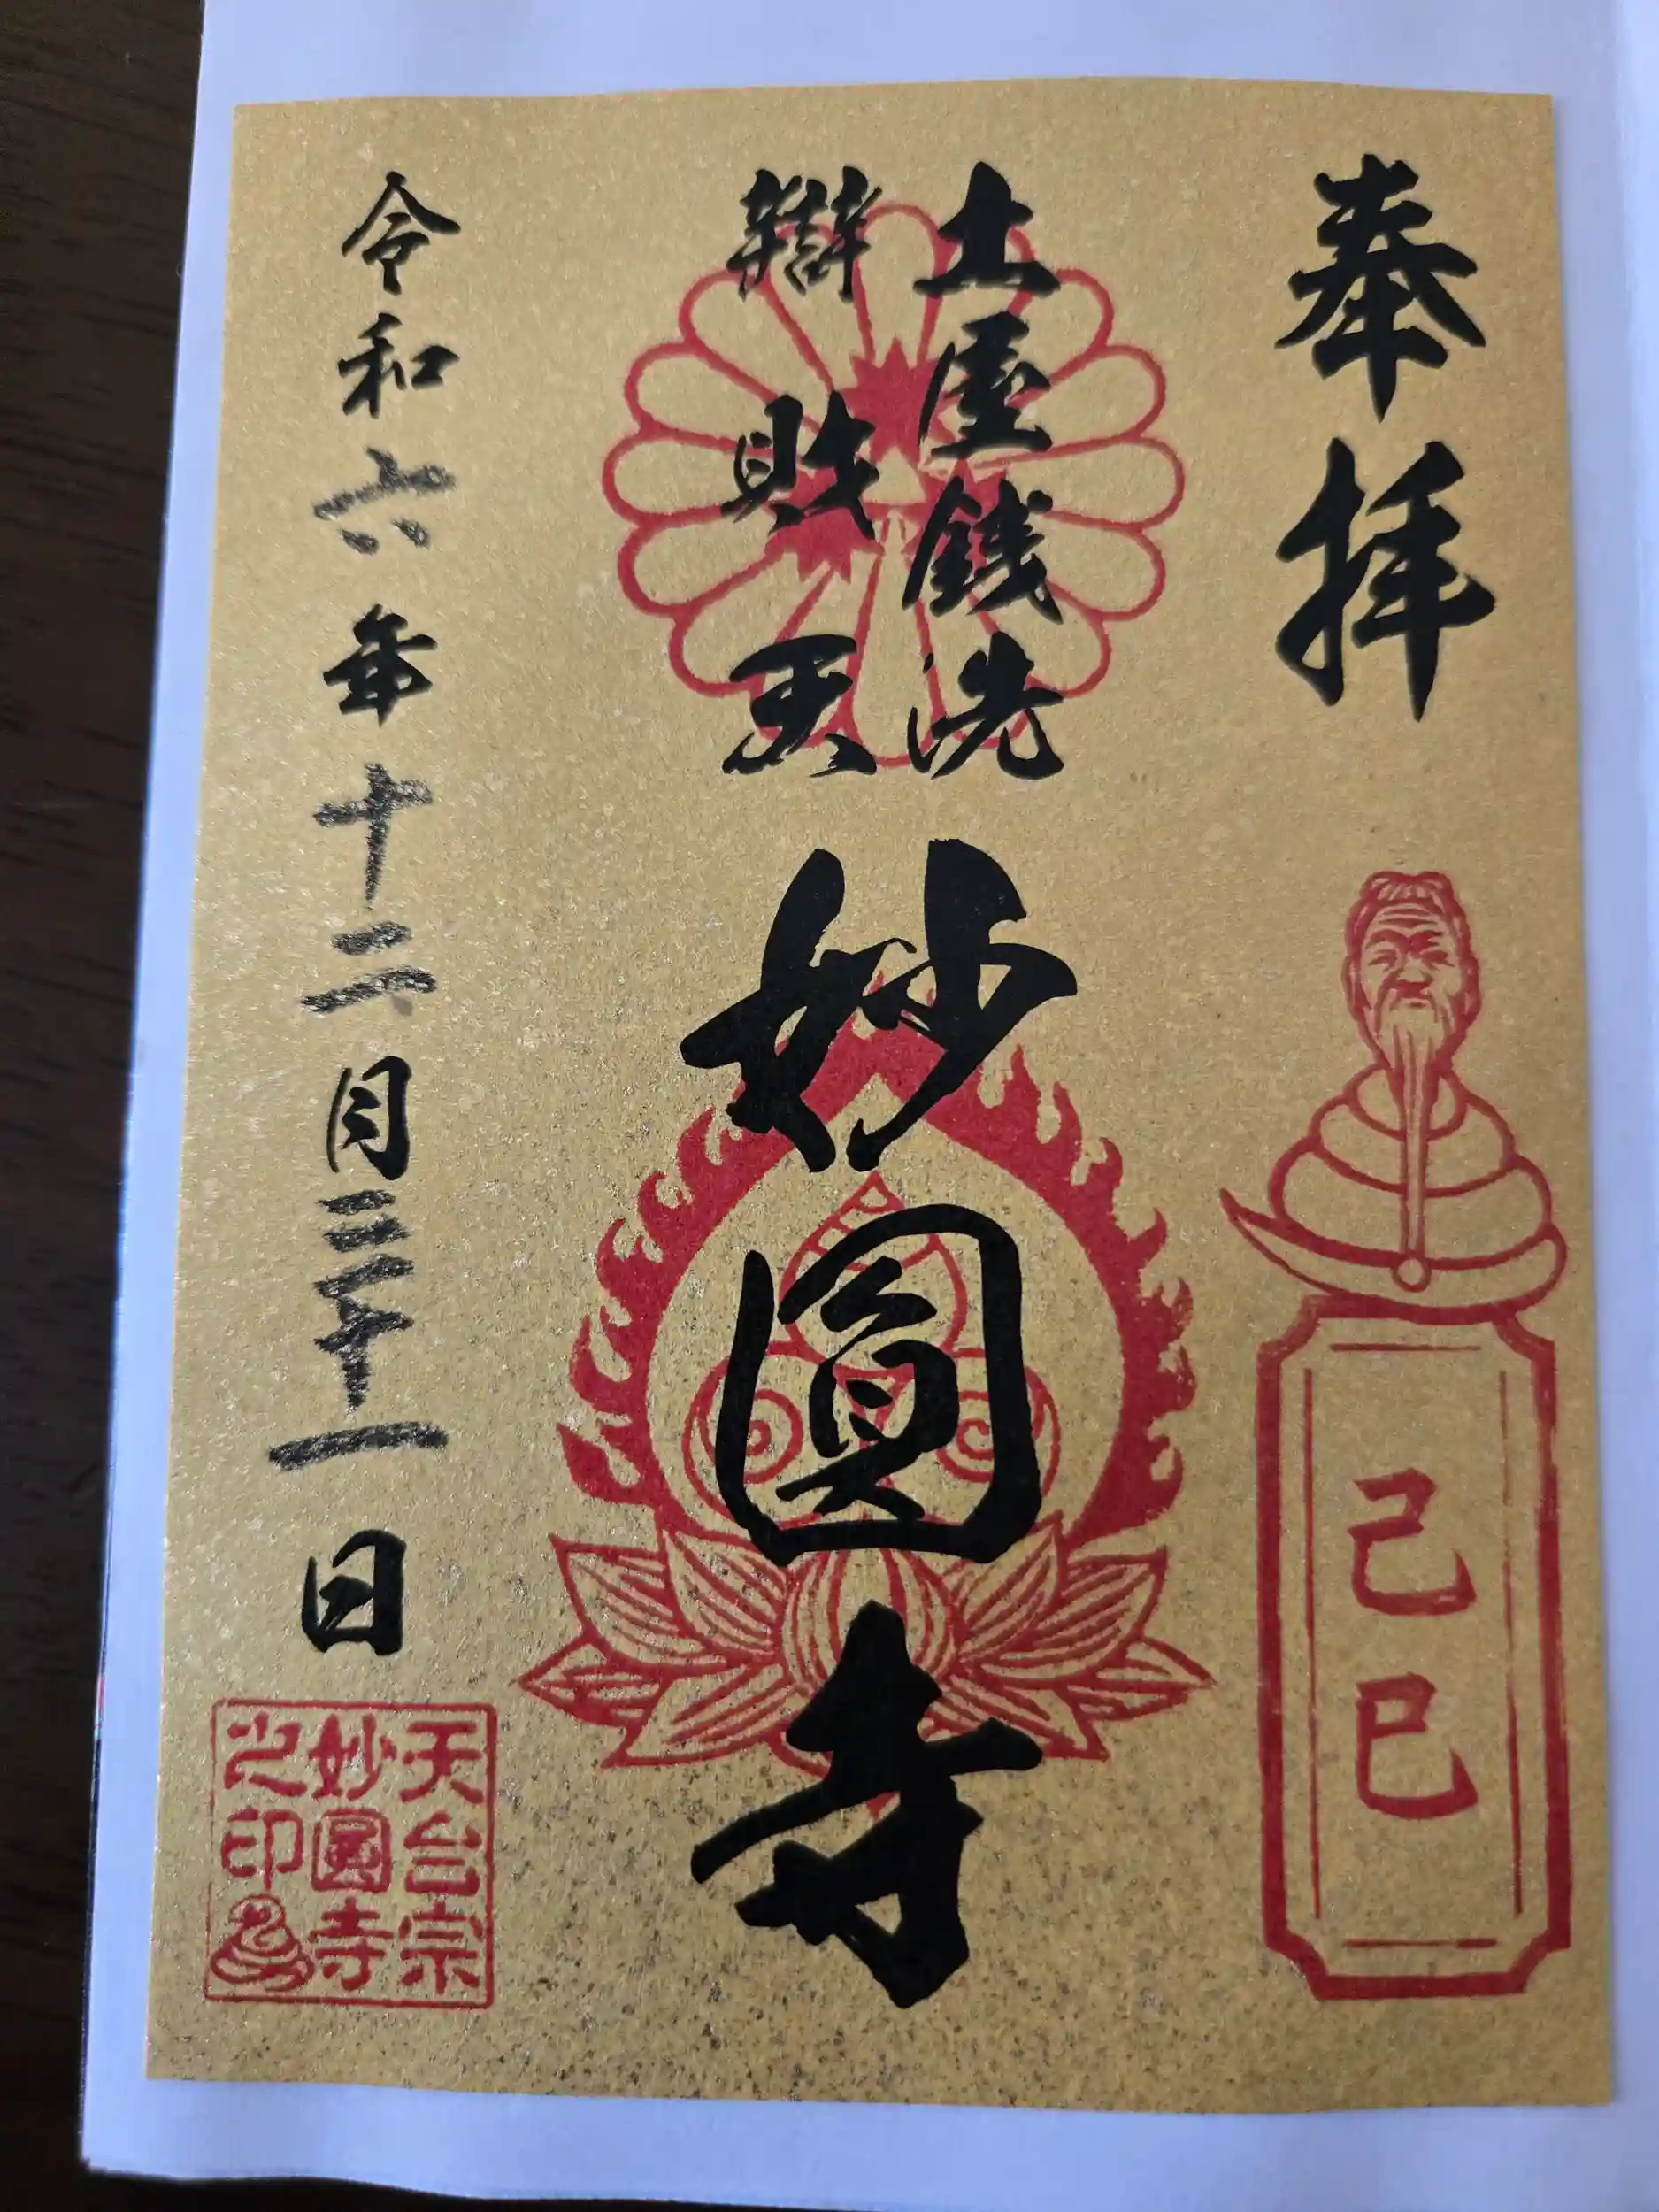 奉拝
己巳
土屋銭洗
辯財天
妙圓寺
令和六年十二月三十一日
天台宗
妙圓寺
之印